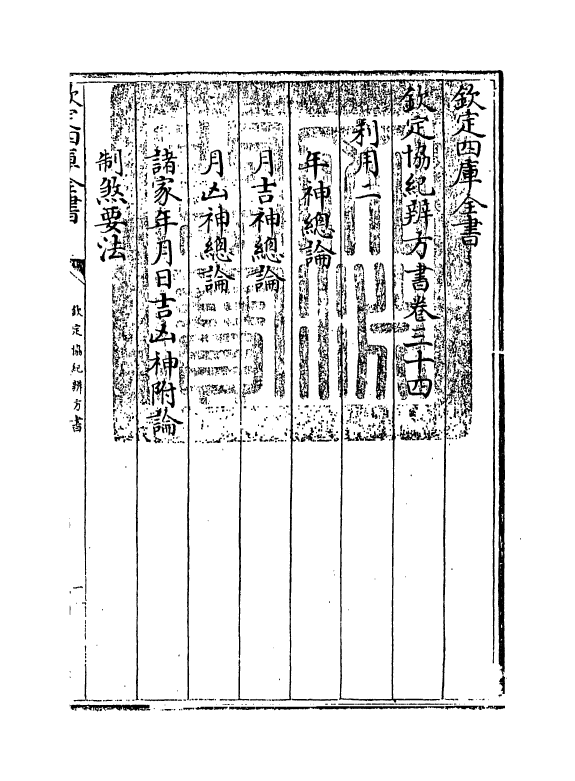 欽定四庫全書
欽定協紀辨方書卷三十四
利用二
年神總論
月吉神總論
月凶神總論
諸家年月日吉凶神附論
制煞要法
欽定四庫全書
欽定協紀辨方書
一